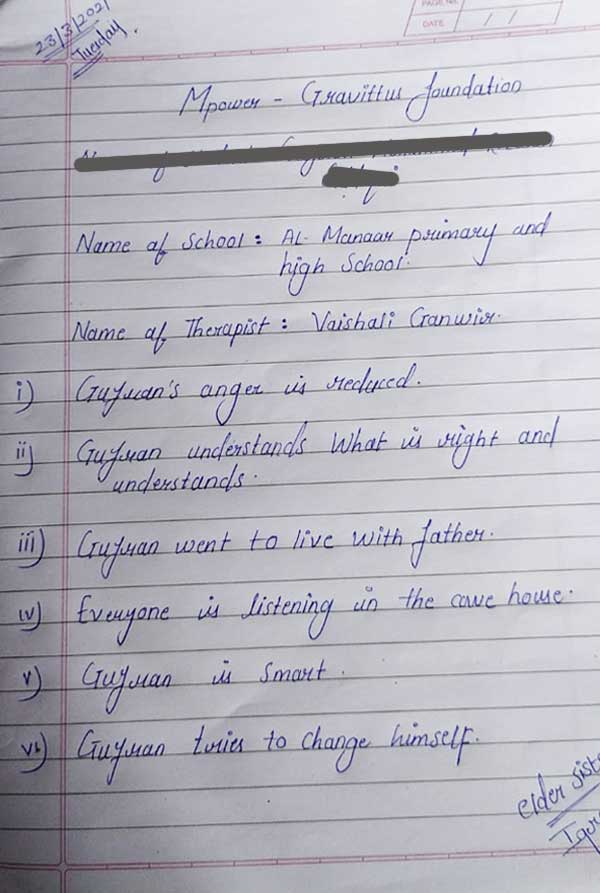 PAGE NO.
DATE / /
23/3/2021
Tuesday.
Mpower - Gravittus foundation
Name of School : AL- Manaar primary and
high School.
Name of Therapist : Vaishali Ganwir.
i) Gufran's anger is reduced.
ii) Gufran understands What is right and
understands.
iii) Gufran went to live with father.
iv) Everyone is listening in the care house.
v) Gufran is Smart.
vi) Gufran tries to change himself.
elder sist